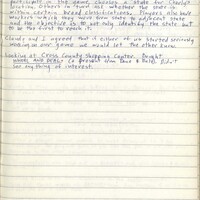 participants in the game, chooses a state for Charly's
location. Others in turn ask whether the ones is
within certain broad classifications. Players also have
workers which they move from state to adjacent state
and the objective is to not only identify the state but
to be the first to reach it.
Claudia and I agreed that if either of us started seriously
working on our game we would let the other know.
Looking at Cross County Shopping Center. Bought
WORDS AND DEEDS (a present from Dave & Dale). Didn't
see anything of interest.